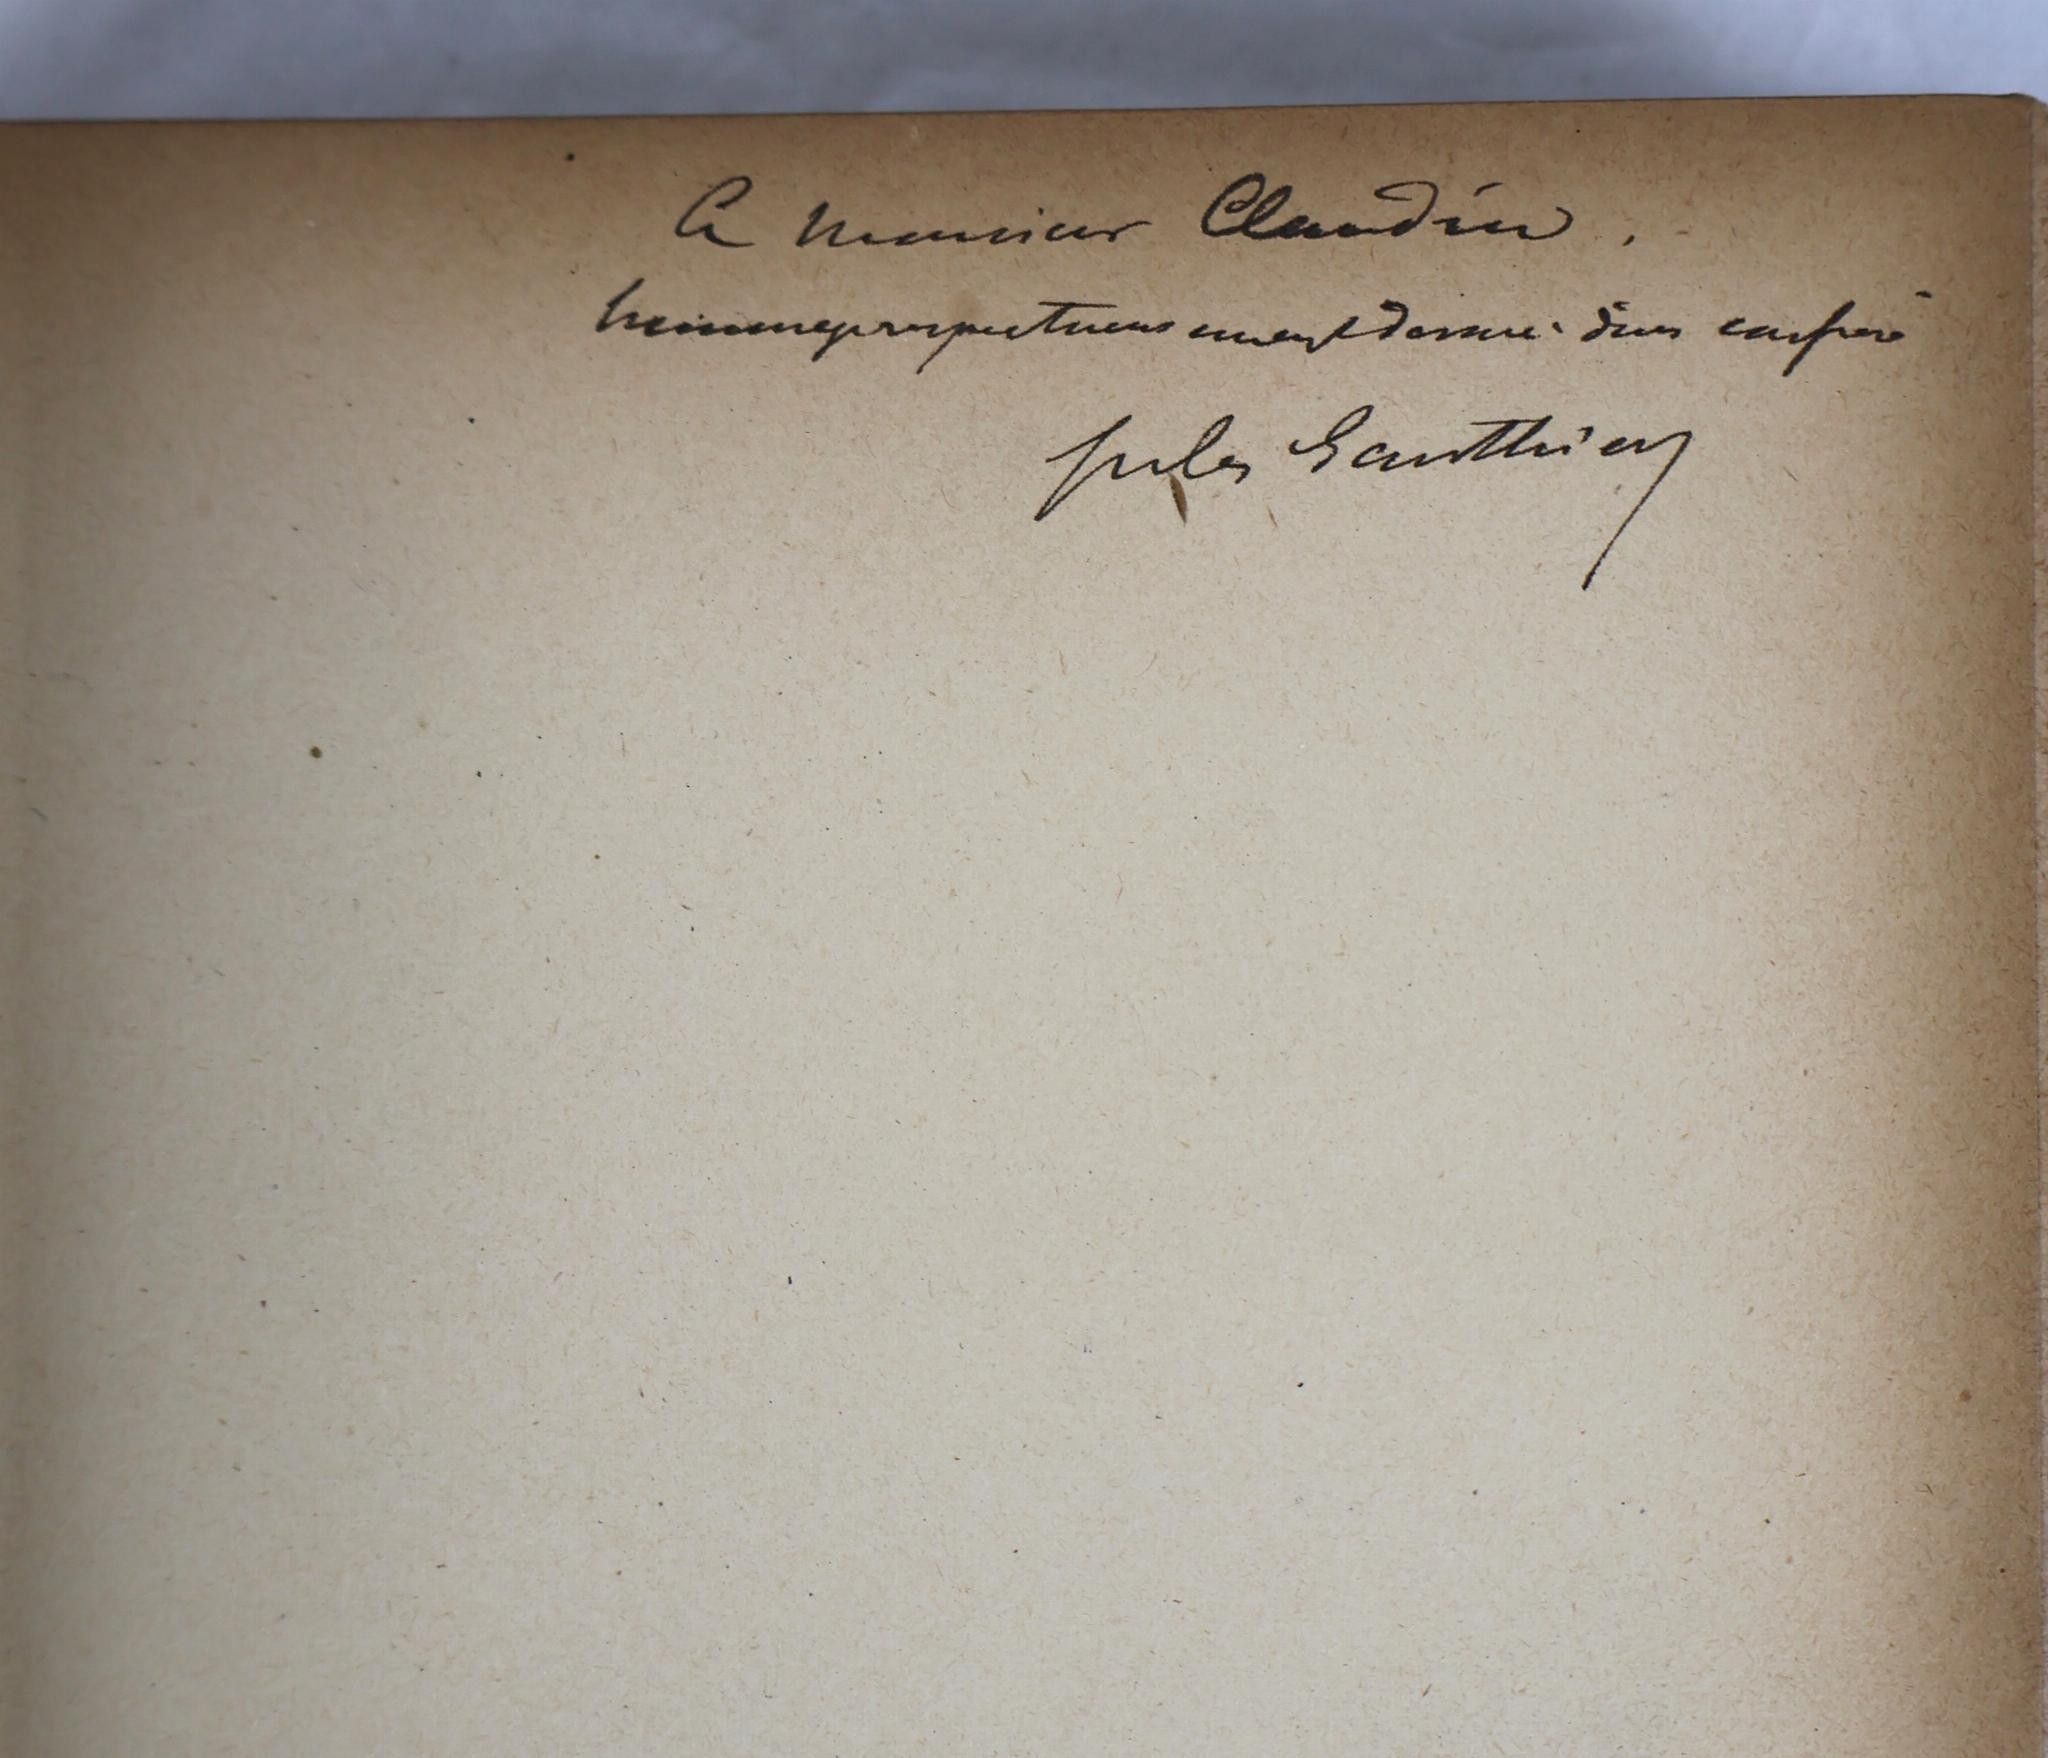 A Monsieur Claudin.
hommage respectueusement dévoué d'un confrère
Jules Gauthier